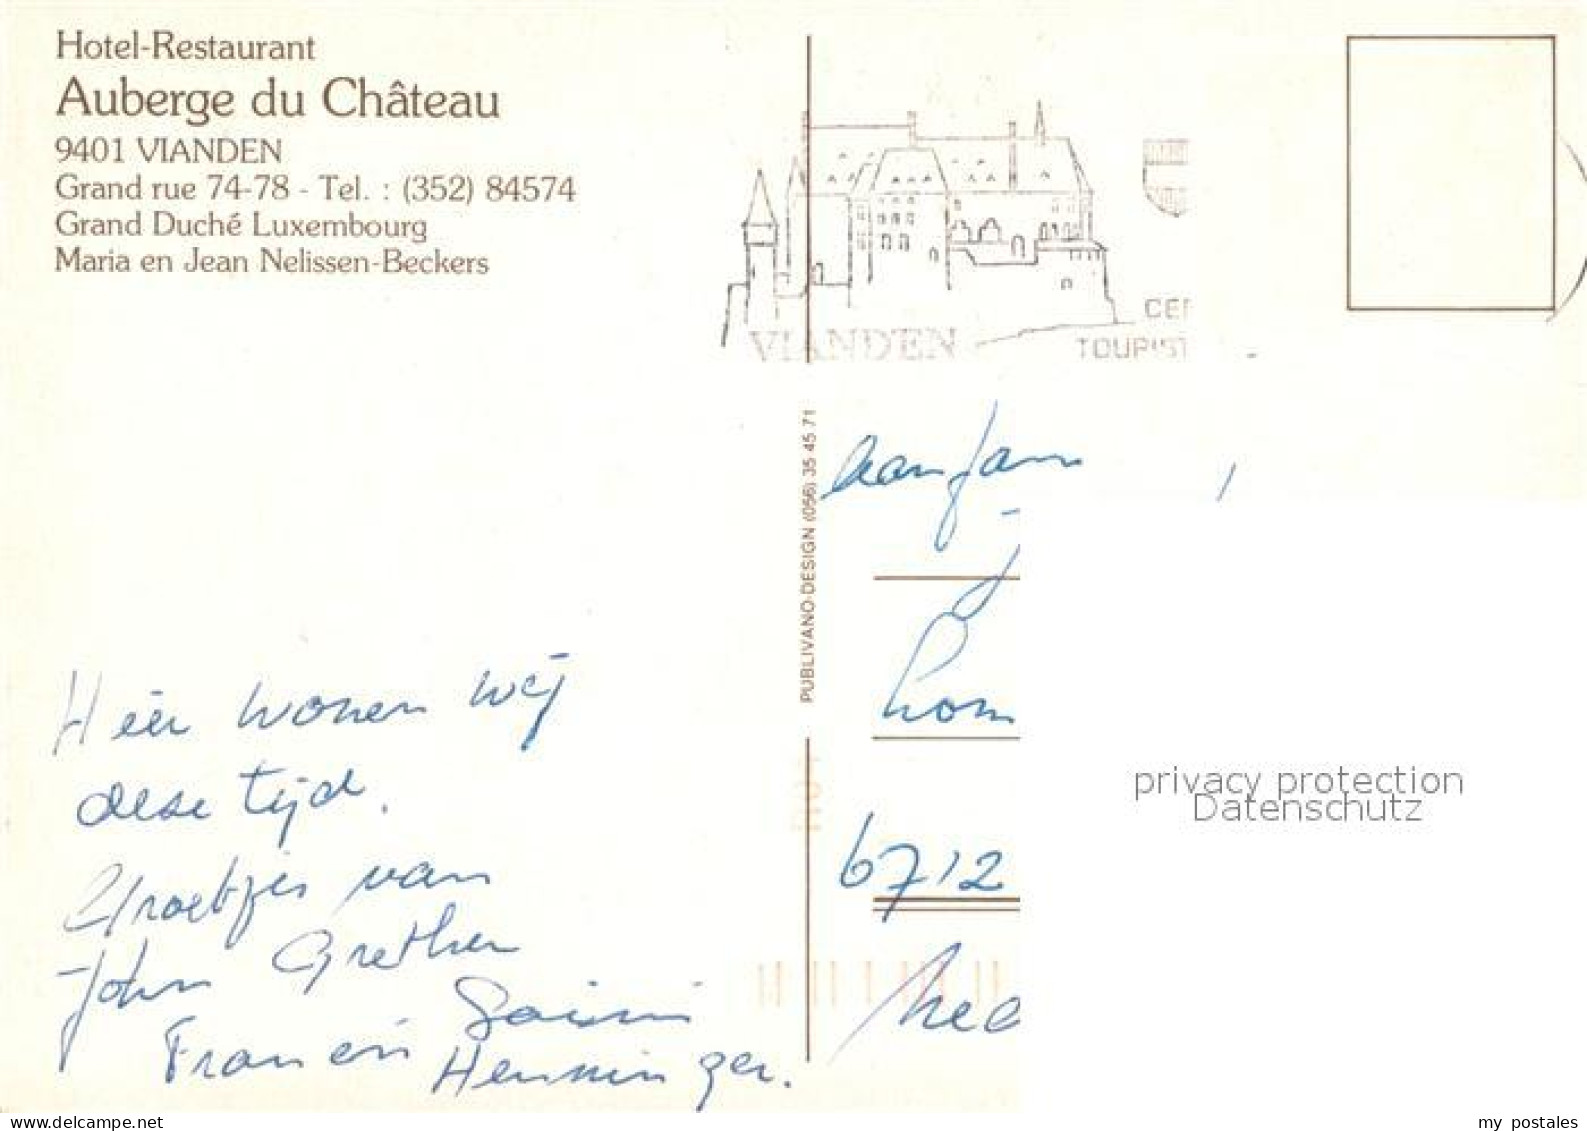 Hotel-Restaurant
Auberge du Château
9401 VIANDEN
Grand rue 74-78 - Tel. : (352) 84574
Grand Duché Luxembourg
Maria en Jean Nelissen-Beckers
VIANDEN
CEN
TOURIST
PUBLIVANO-DESIGN (056) 35 45 71
aan fam
6712
Hier wonen wij
deze tijd.
Groetjes van
John Grethen
Henninger.
privacy protection
Datenschutz
my postales